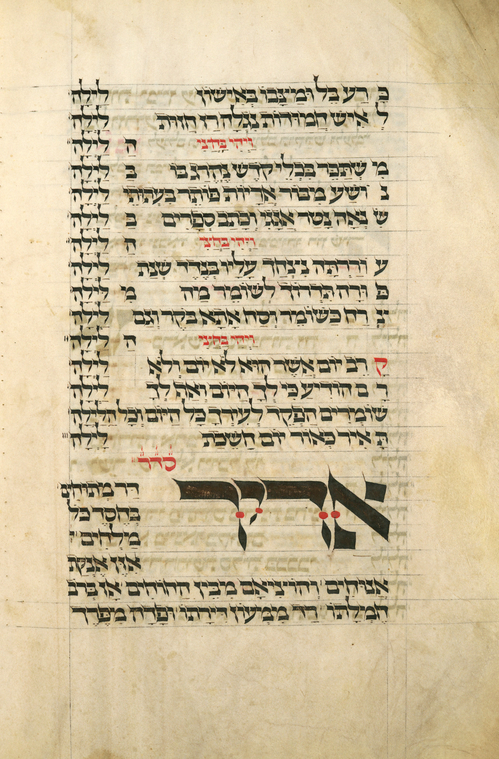 כ רע בל ומצבו באישון לילה
ל איש חמודות נגלה רז חזות לילה
ויהי בחצי ה לילה
מ שתכר בכלי קדש נהרג בו ב לילה
נ ושע מבור אריות פותר בעתותי לילה
ש נאה נטר אגגי וכתב ספרים ב לילה
ויהי בחצי ה לילה
ע וררתה נצחך עליו בנדד שנת לילה
פ ורה תדרוך לשומר מה מ לילה
צ רח כשומר וסח אתא בקר וגם לילה
ויהי בחצי ה לילה
ק רב יום אשר הוא לא יום ולא לילה
ר ם הודיע כי לך היום ואף לך לילה
שומרים הפקד לעירך כל היום וכל הלילה
ת איר כאור יום חשכת לילה
סדר
אדיר דר מתוחים
בחסד כל
מלחים
אזן אנקת
אנוחים והוציאם מבין החוחים אז ברב
חמלתו ירד ממעון דירתו ופדה